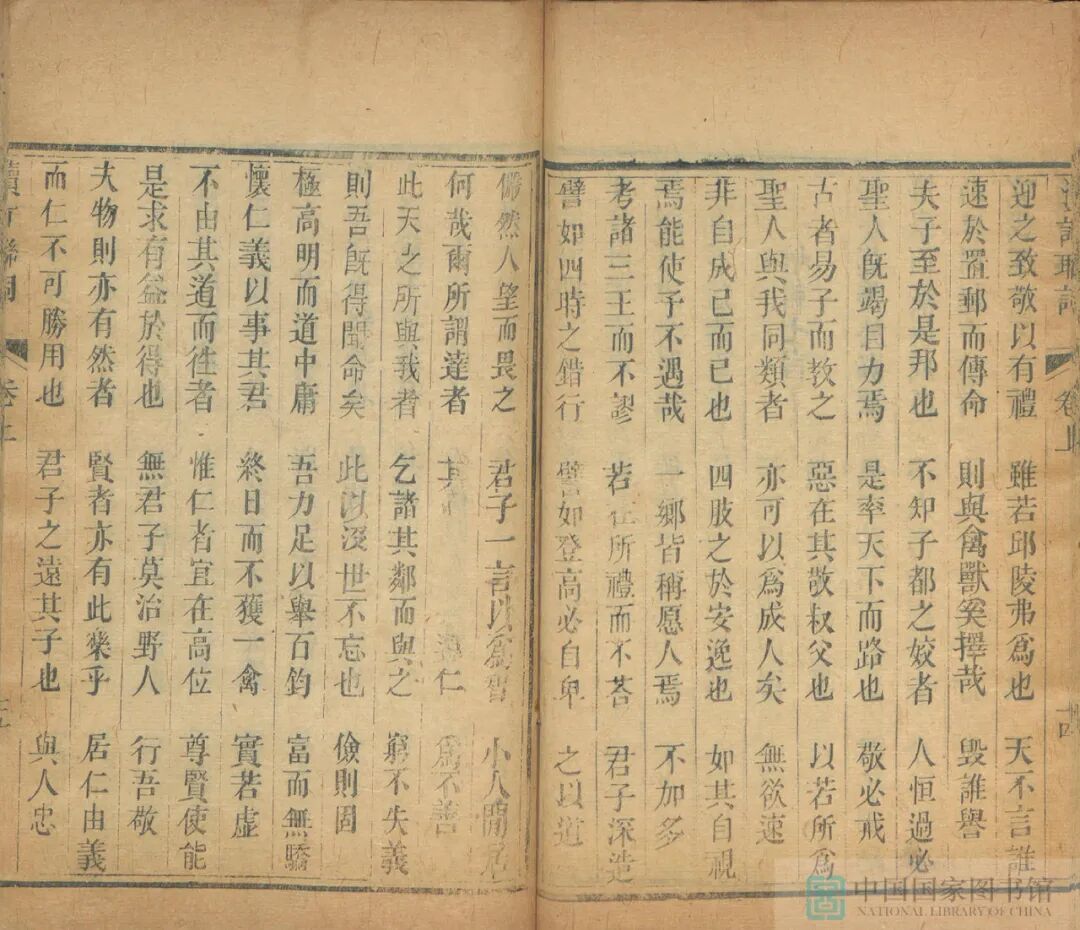 卷上
十四
迎之致敬以有禮　雖若邱陵弗爲也　天不言誰
速於置郵而傳命　則與禽獸奚擇哉　毀誰譽
夫子至於是邦也　不知子都之姣者　人恒過必
聖人既竭目力焉　是率天下而路也　敬必戒
古者易子而教之　惡在其敬叔父也　以若所爲
聖人與我同類者　亦可以爲成人矣　無欲速
非自成己而已也　四肢之於安逸也　如其自視
焉能使予不遇哉　一鄉皆稱愿人焉　不加多
考諸三王而不謬　若在所禮而不荅　君子深造
譬如四時之錯行　譬如登高必自卑　之以道
儼然人望而畏之　君子一言以爲智　小人閒居
何哉爾所謂達者　其仁　爲不善
此天之所與我者　乞諸其鄰而與之　窮不失義
則吾既得聞命矣　此以沒世不忘也　儉則固
極高明而道中庸　吾力足以舉百鈞　富而無驕
懷仁義以事其君　終日而不獲一禽　實若虛
不由其道而往者　惟仁者宜在高位　尊賢使能
是求有益於得也　無君子莫治野人　行吾敬
大物則亦有然者　賢者亦有此樂乎　居仁由義
而仁不可勝用也　君子之遠其子也　與人忠
卷上
中国国家图书馆
NATIONAL LIBRARY OF CHINA